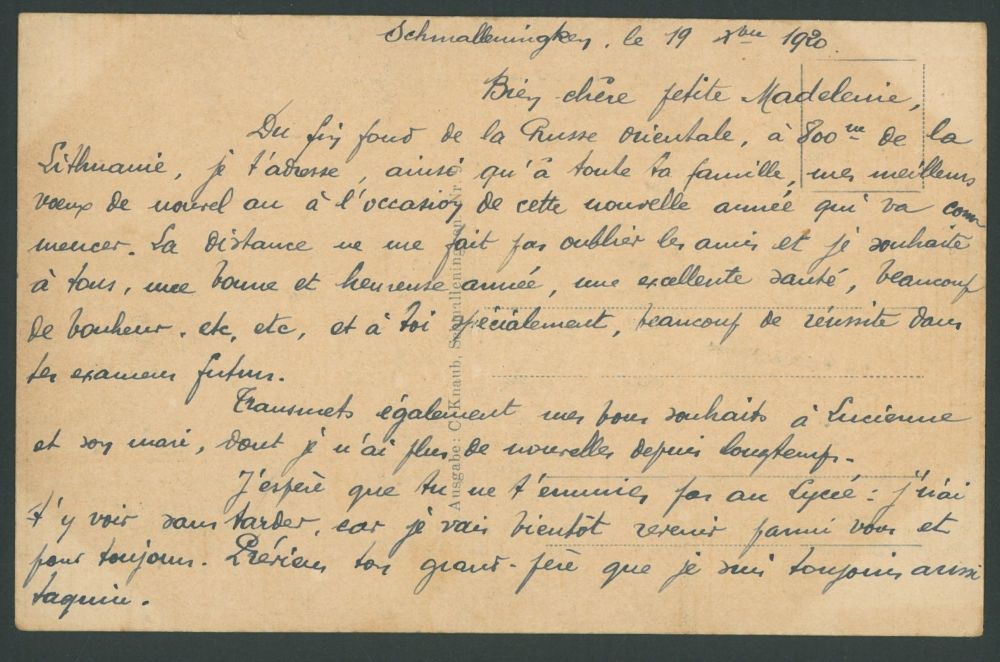 Schmalleningken, le 19 Xbre 1920.
Bien chère petite Madeleine,
Du fin fond de la Prusse orientale, à 800 m de la
Lithuanie, je t'adresse, ainsi qu'à toute ta famille, mes meilleurs
vœux de nouvel an à l'occasion de cette nouvelle année qui va com
mencer. La distance ne me fait pas oublier les amis et je souhaite
à tous, une bonne et heureuse année, une excellente santé, beaucoup
de bonheur. etc, etc, et à toi spécialement, beaucoup de réussite dans
tes examens futurs.
Transmets également mes bons souhaits à Lucienne
et son mari, dont je n'ai plus de nouvelles depuis longtemps.
J'espère que tu ne t'ennuies pas au Lycée : j'irai
t'y voir sans tarder, car je vais bientôt revenir parmi vous et
pour toujours. Préviens ton grand-père que je suis toujours aussi
taquin.
Ausgabe: C. Knaub, Schmalleningken Nr. 9